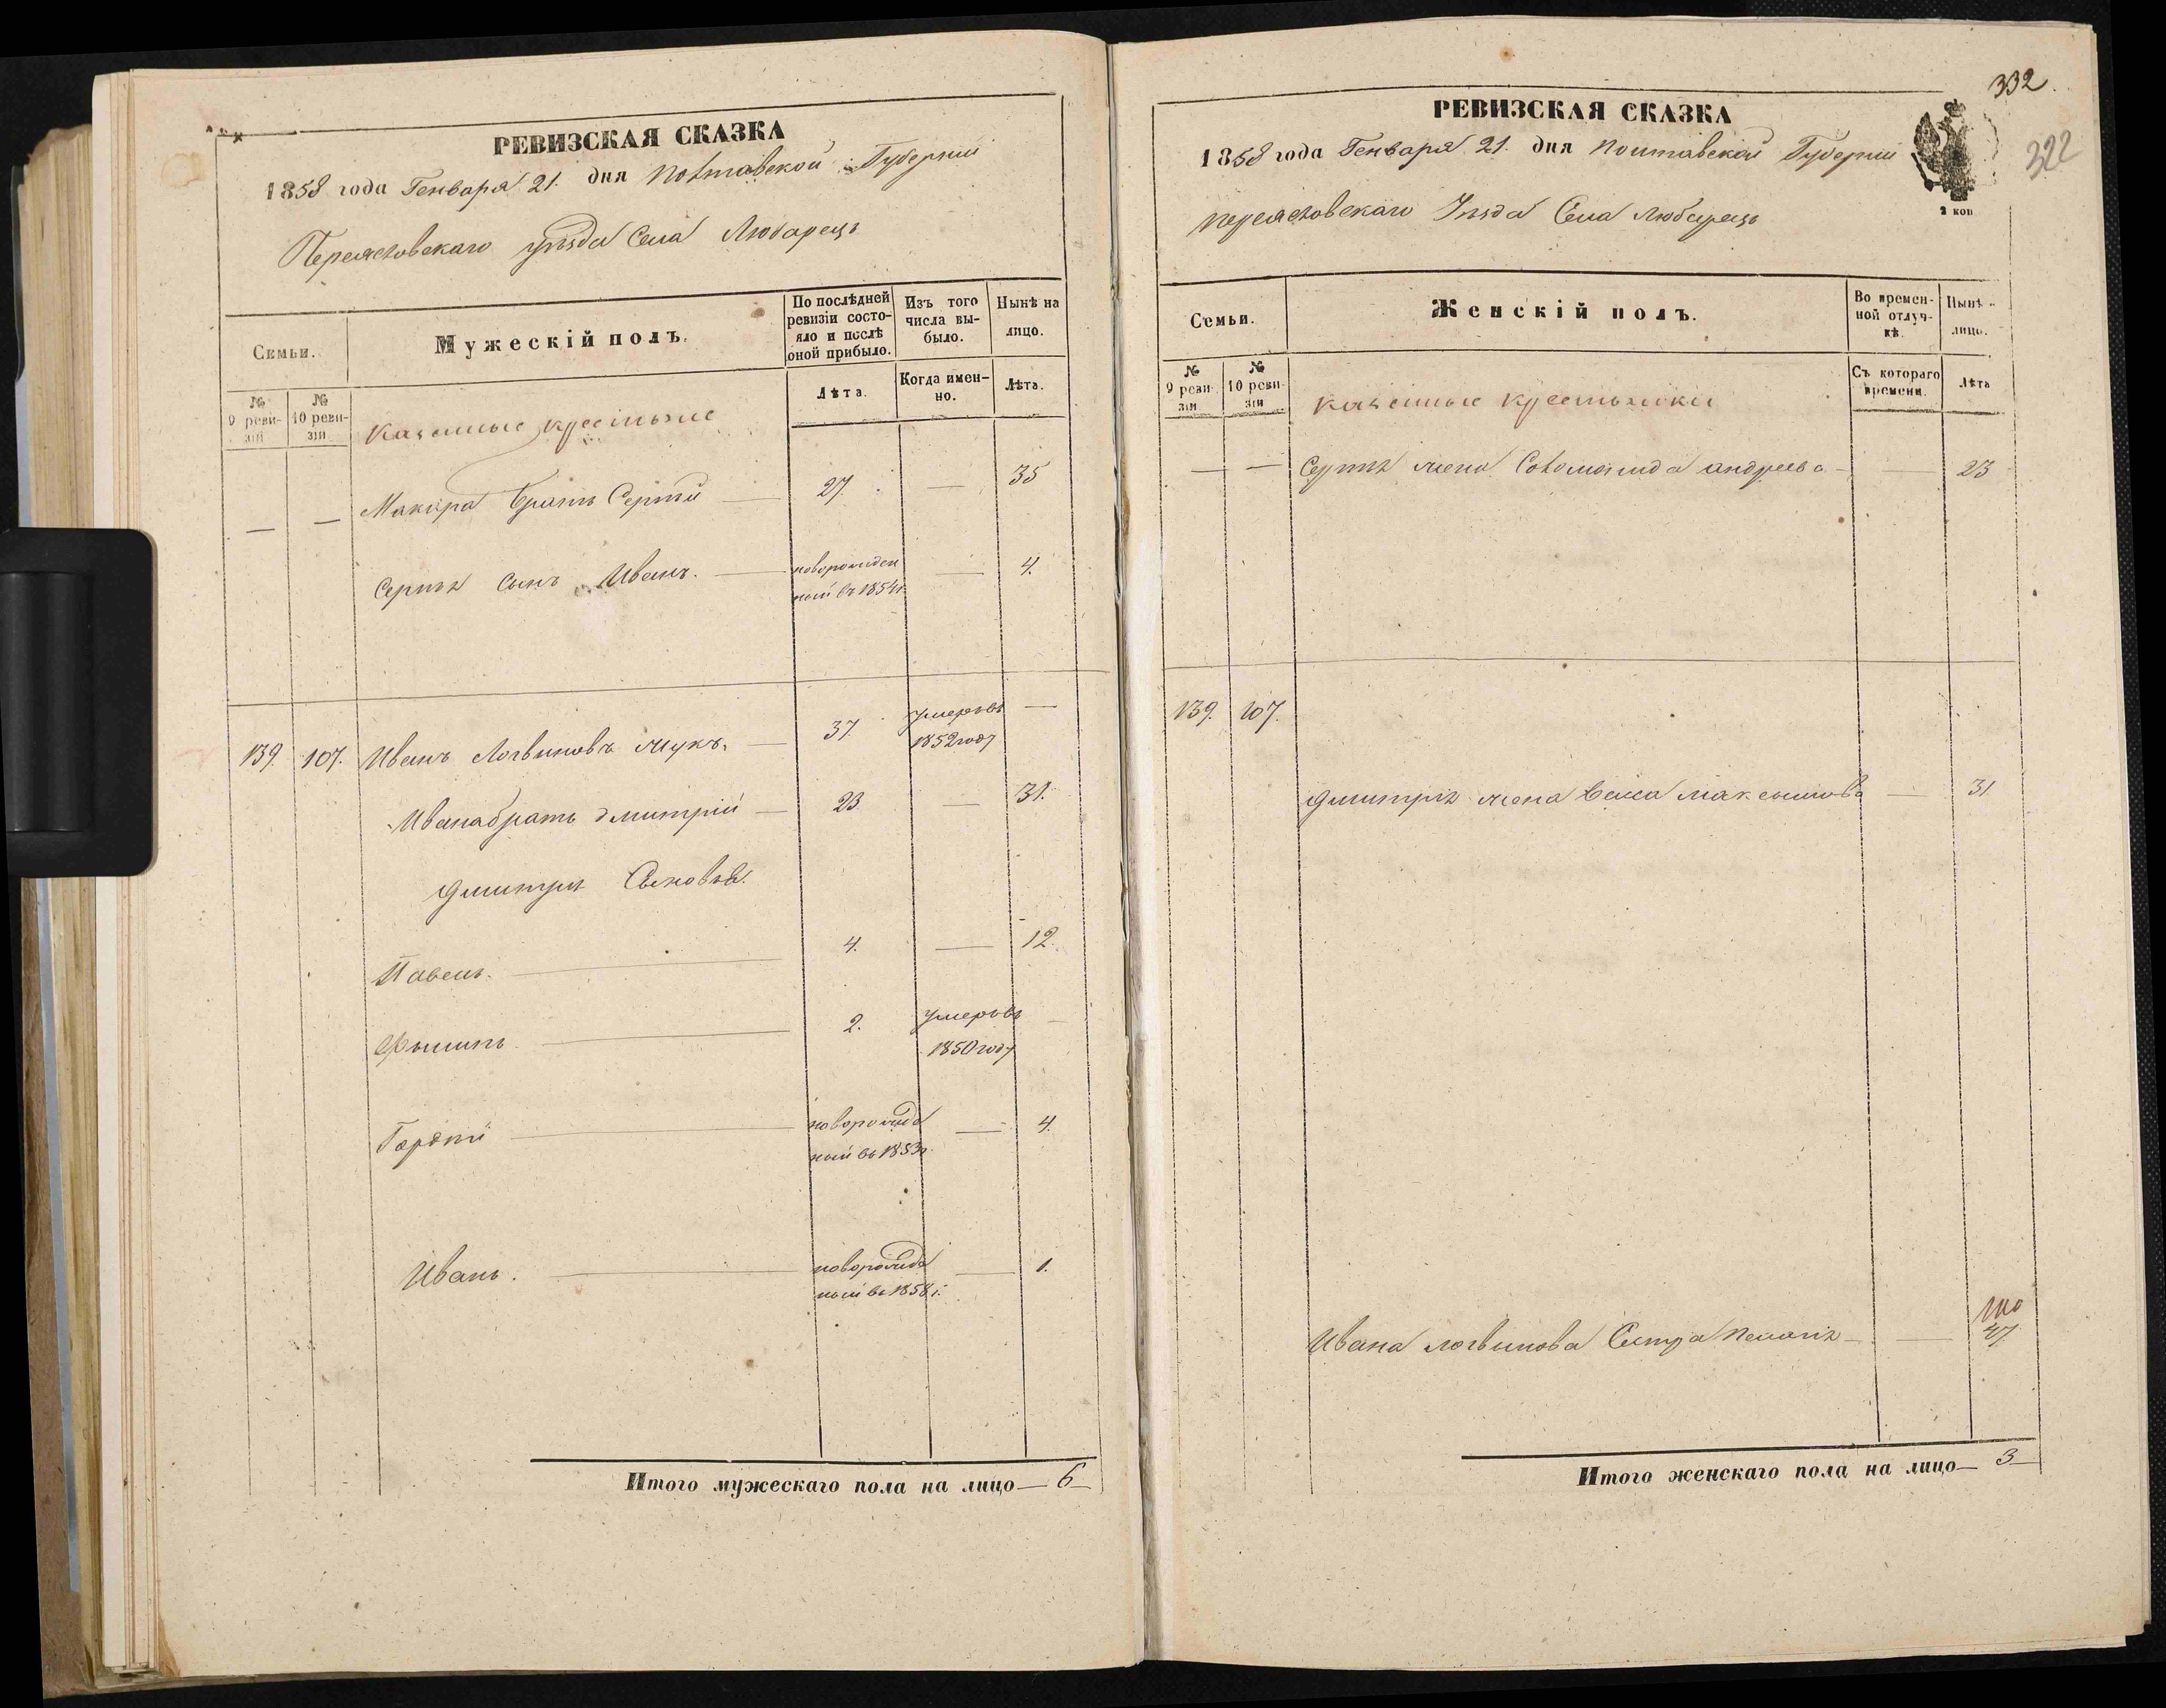 РЕВИЗСКАЯ СКАЗКА
1858 года Генваря 21. дня Полтавской Губернии
Переяславскаго уѣзда Села Любарецъ
Семьи.
Мужескій полъ.
По послѣдней ревизіи состо-
яло и послѣ оной прибыло.
Изъ того числа вы-
было.
Нынѣ на лицо.
№ 9 реви-
зіи
№ 10 реви-
зіи
казенные крестьяне
Лѣта.
Когда имен-
но.
Лѣта.
— — Макара братъ Сергѣй — 27. — 35
Сергѣя сынъ Иванъ. — новорожден
ный въ 1854г. — 4.
139. 107. Иванъ Логвиновъ — 37 умеръ въ —
1852 году
Ивана братъ дмитрій — 23 — 31.
Дмитрія Сыновья.
Павелъ. — 4. — 12.
Филипъ — 2. умеръ въ —
1850 году
Гордѣй — новорожд
ный въ 1853г. — 4.
Иванъ. — новорожд
ный въ 1858г. — 1.
Итого мужескаго пола на лицо — 6 —
332.
322
РЕВИЗСКАЯ СКАЗКА
1858 года Генваря 21. дня Полтавской Губерніи
2 коп
Переяславскаго Уѣзда Села Любарецъ
Семьи.
Женскій полъ.
Во времен-
ной отлуч-
кѣ.
Нынѣ
лицо.
№ 9 реви-
зіи
№ 10 реви-
зіи
казенные крестьянки
Съ котораго времени.
Лѣта
— — Сергѣя жена Соломонида андреева — — 23
139. 107.
Дмитрія жена максимова — 31
Ивана логвинова Сестра Пелагія — — 47.
Итого женскаго пола на лицо — 3 —